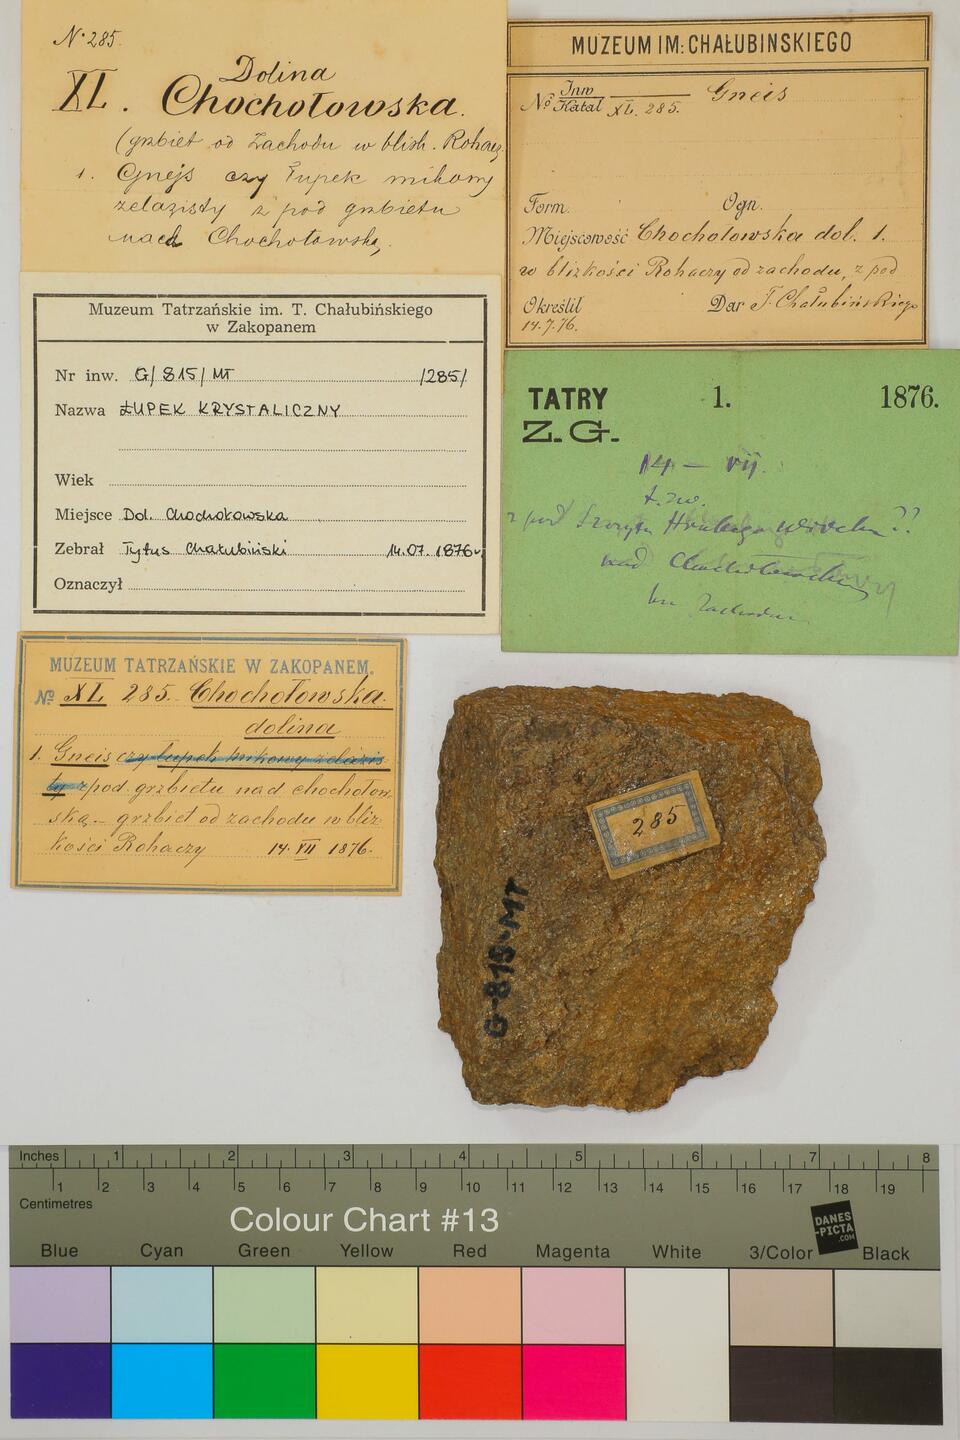 N° 285.
XL. Dolina
Chochołowska.
(grzbiet od Zachodu w blizk. Rohaczy
1. Gnejs czy Łupek mikowy
żelazisty z pod grzbietu
nad Chochołowską,
MUZEUM IM: CHAŁUBINSKIEGO
No Inw
Katal XL. 285. Gneis
Form. Ogn.
Miejscowość Chochołowska dol. 1.
w blizkości Rohaczy od zachodu, z pod
Określił Dar T. Chałubińskiego
14.7.76.
Muzeum Tatrzańskie im. T. Chałubińskiego
w Zakopanem
Nr inw. G/815/MT /285/
Nazwa ŁUPEK KRYSTALICZNY
Wiek
Miejsce Dol. Chochołowska
Zebrał Tytus Chałubiński 14.07.1876r.
Oznaczył
TATRY 1. 1876.
Z. G.
14 – VII.
t. zw.
z pod Szczytu ??
nad
MUZEUM TATRZAŃSKIE W ZAKOPANEM.
No XL 285. Chochołowska
dolina
1. Gneis czy łupek mikowy żelazis
ty z pod grzbietu nad chochołow-
ską – grzbiet od zachodu w bliz-
kości Rohaczy 14. VII 1876.
285
G-815-MT
Inches 1 2 3 4 5 6 7 8
1 2 3 4 5 6 7 8 9 10 11 12 13 14 15 16 17 18 19
Centimetres
Colour Chart #13
DANES
-PICTA
.COM
Blue Cyan Green Yellow Red Magenta White 3/Color Black